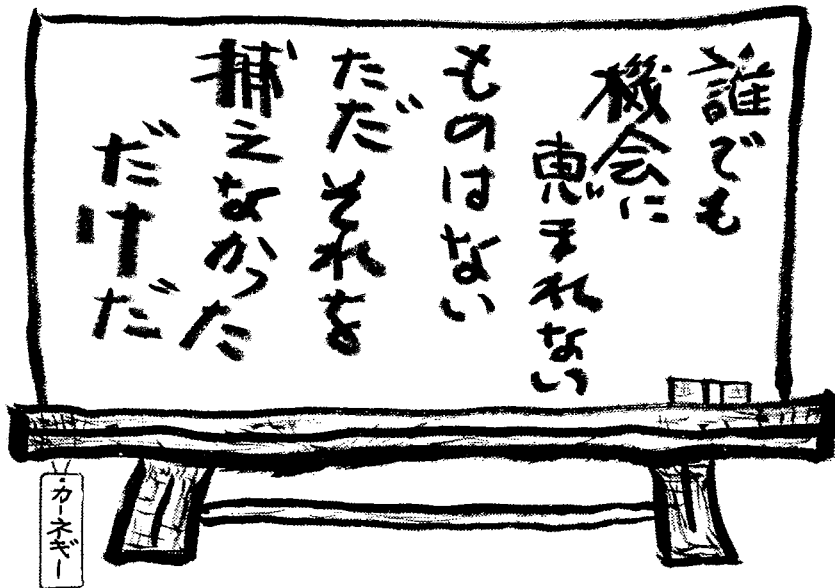 誰でも
機会に
恵まれない
ものはない
ただそれを
捕えなかった
だけだ
カーネギー